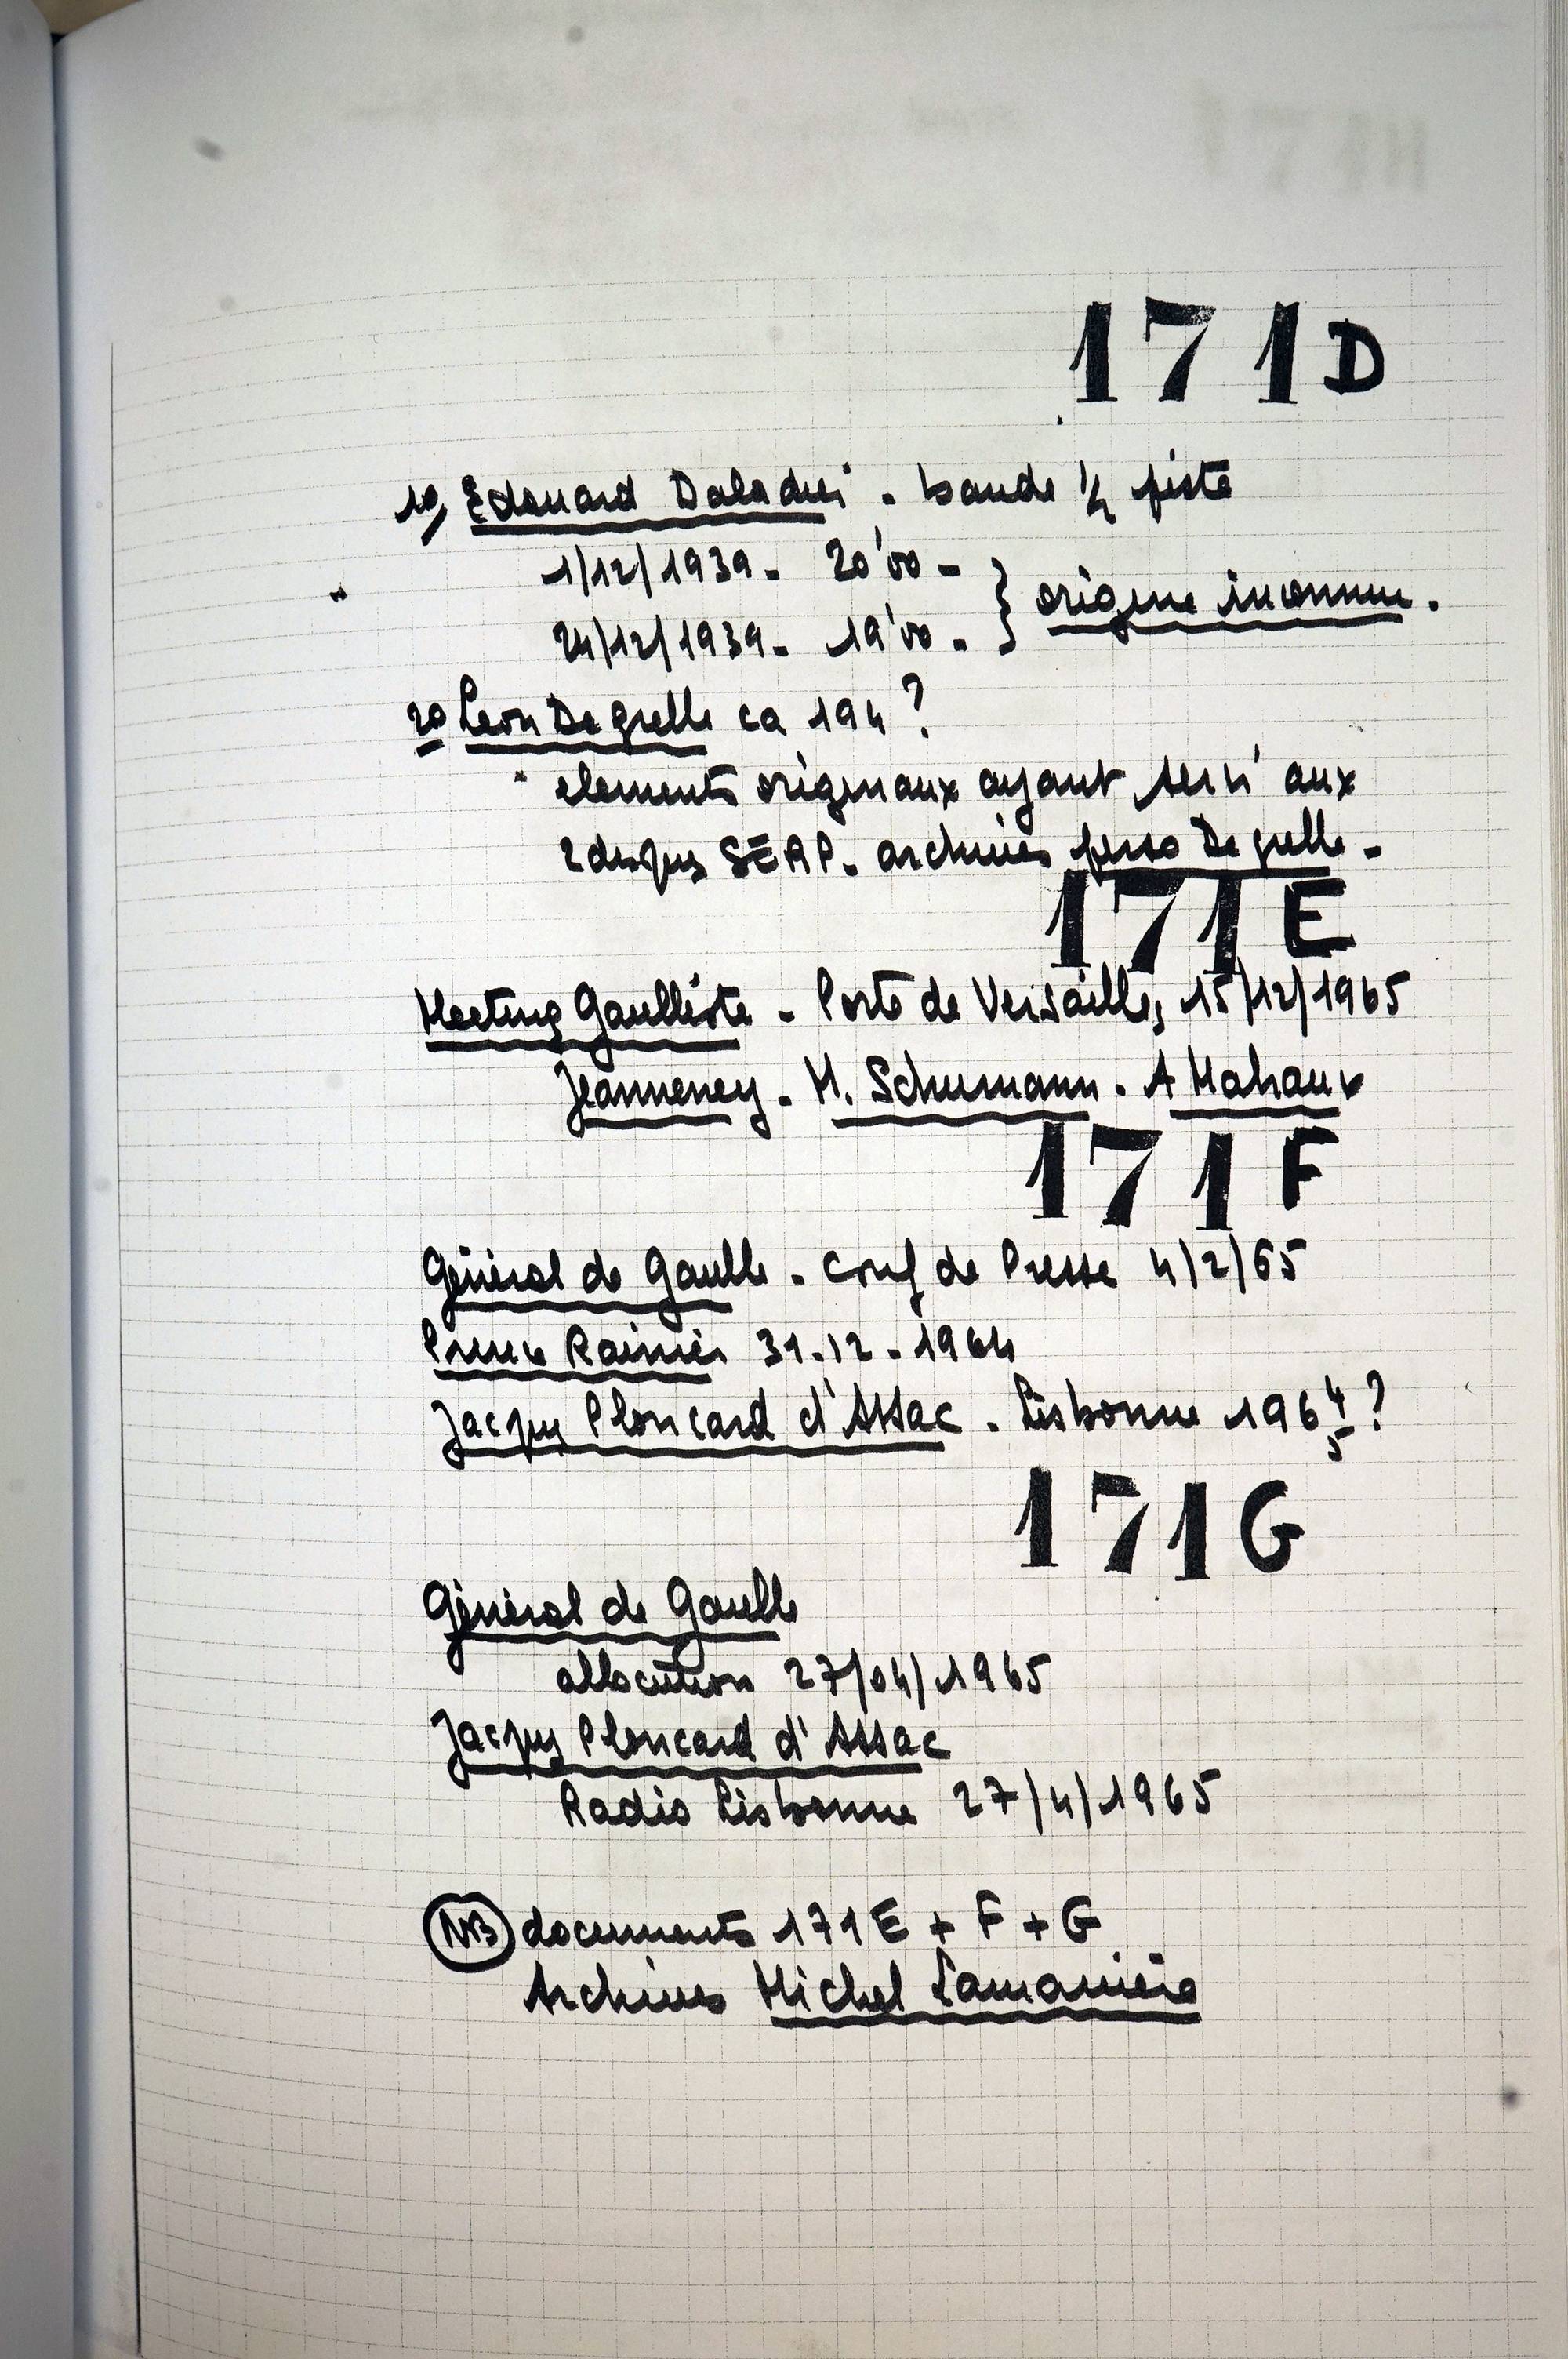 171D
1º/ Edouard Daladier - bande ½ piste
1/12/1939 - 20'00 -
24/12/1939 - 19'00 - } origine inconnue.
2º Leon Degrelle ca 194?
elements originaux ayant servi aux
2 disques SERP - archives perso Degrelle -
171E
Meeting Gaulliste - Porte de Versailles, 15/12/1965
Jeanneney - M. Schumann - A Malraux
171F
Général de Gaulle - Conf de Presse 4/2/65
Prince Rainier 31-12-1964
Jacques Ploncard d'Assac - Lisbonne 1964/5?
171G
Général de Gaulle
allocution 27/04/1965
Jacques Ploncard d'Assac
Radio Lisbonne 27/4/1965
NB documents 171E + F + G
Archives Michel